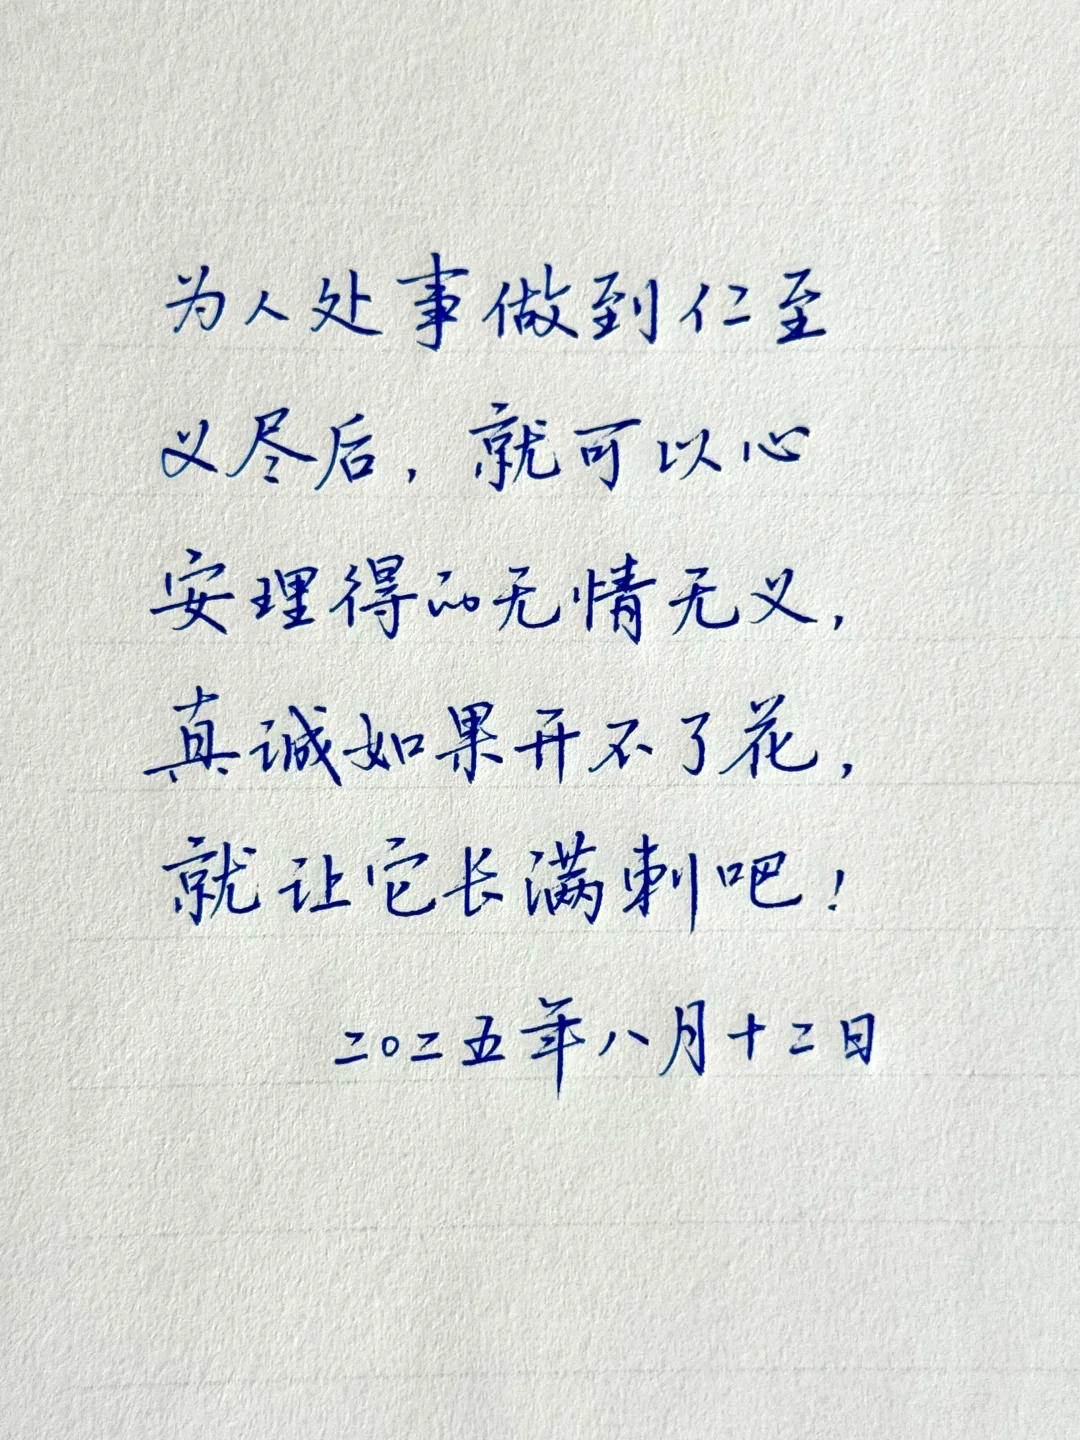 为人处事做到仁至
义尽后，就可以心
安理得的无情无义，
真诚如果开不了花，
就让它长满刺吧！
二〇二五年八月十二日